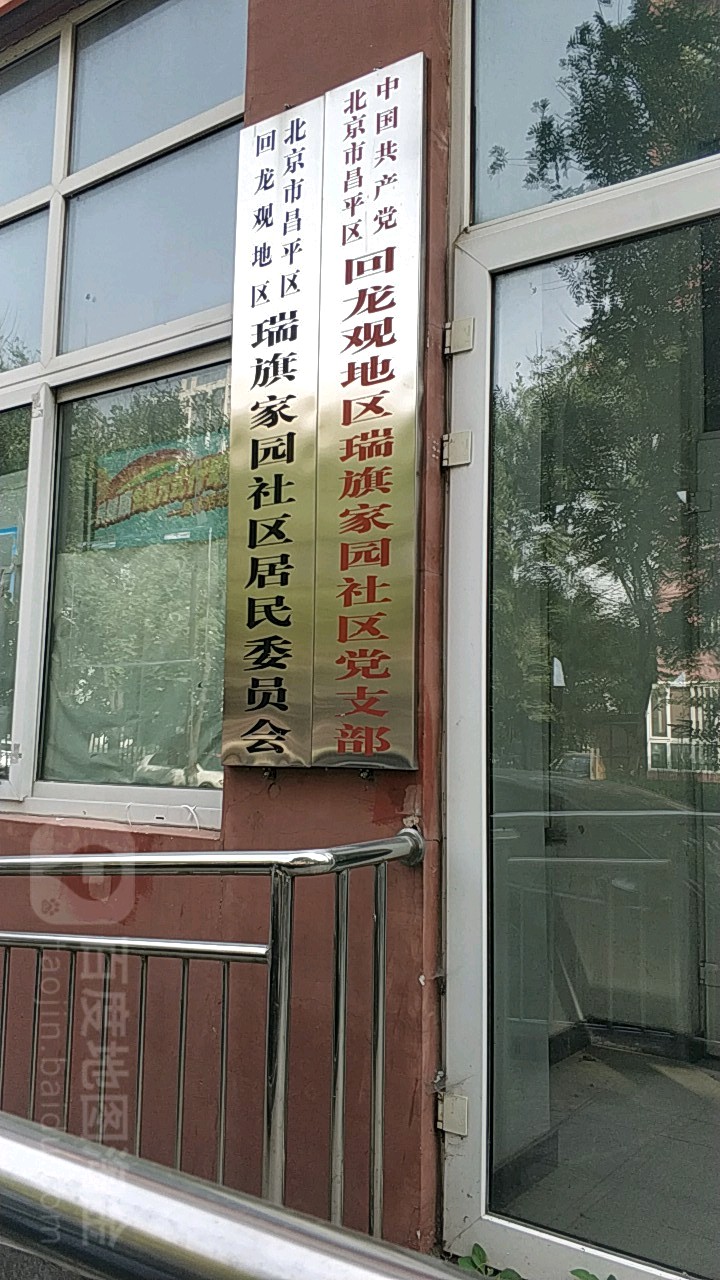 中国共产党
北京市昌平区
回龙观地区瑞旗家园社区党支部
北京市昌平区
回龙观地区
瑞旗家园社区居民委员会
百度地图淘金
taojin.baidu.com